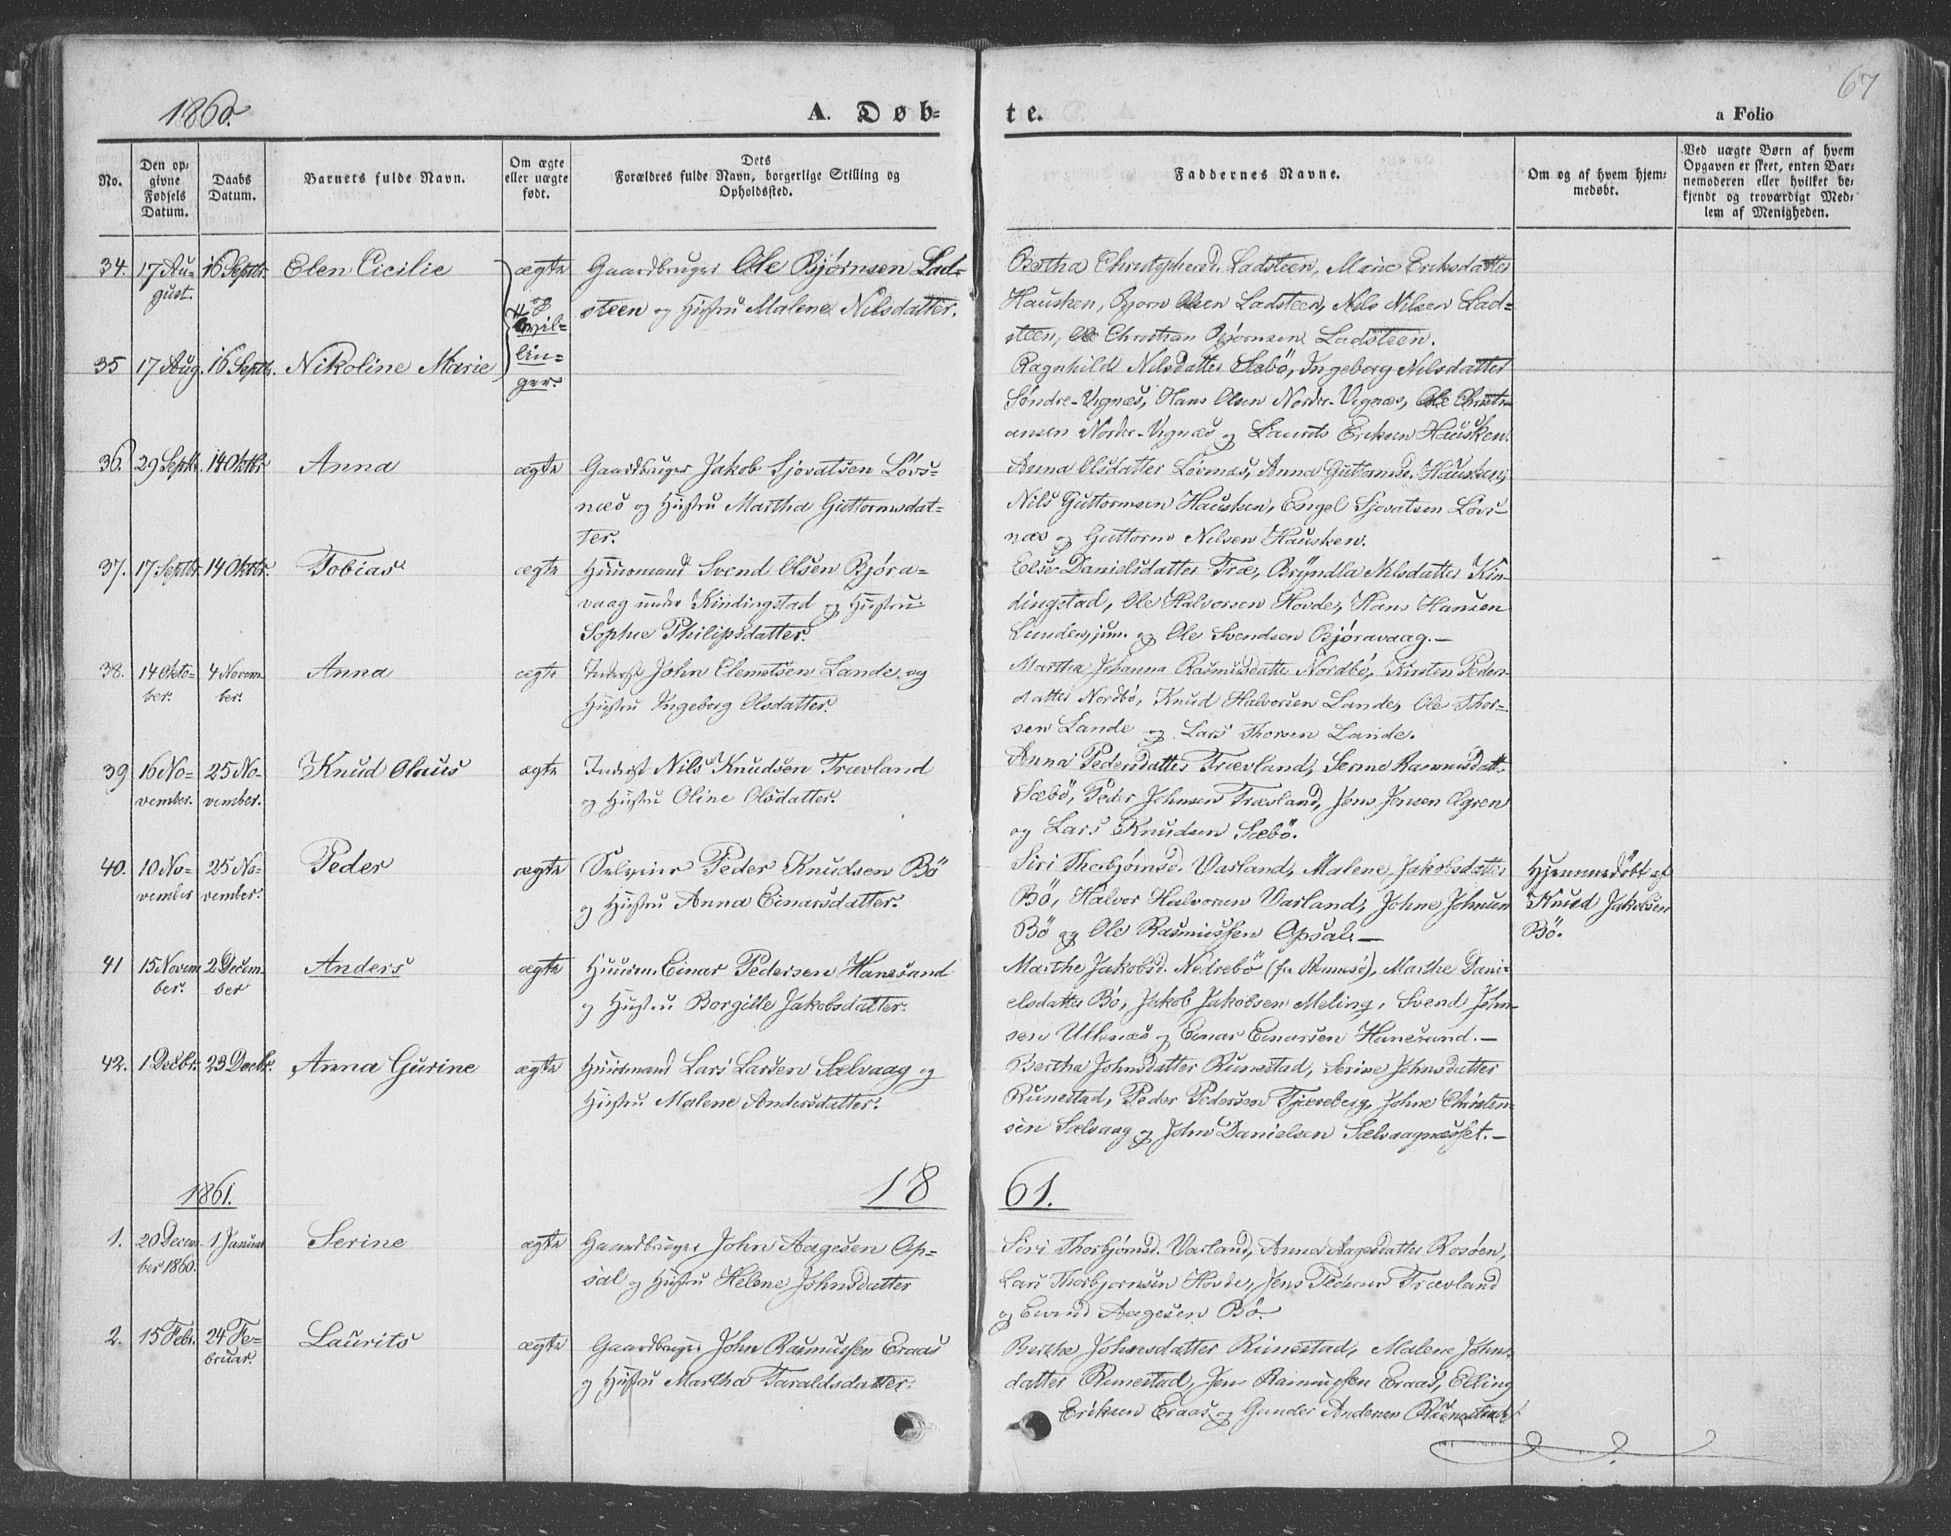 1860.
A. Døb-
te.
a Folio
67
No.
Den op-
givne
Fødsels
Datum.
Daabs
Datum.
Barnets fulde Navn.
Om ægte
eller uægte
født.
Dets
Forældres fulde Navn, borgerlige Stilling og
Opholdssted.
Faddernes Navne.
Om og af hvem hjem-
medøbt.
Ved uægte Børn af hvem
Opgaven er skeet, enten Bar-
nemoderen eller hvilket be-
kjendt og troværdigt Med-
lem af Menigheden.
34. 17 Au-
gust.
16 Septbr.
Elen Cicilie
ægte
Tvil-
lin-
ger.
Gaardbruger Ole Bjørnsen Lad-
steen og Hustru Malene Nilsdatter.
Bertha Christophersd. Ladsteen, Marie Eriksdatter
Hausken, Bjørn Olsen Ladsteen, Nils Nilsen Lad-
steen, Ole Christian Bjørnsen Ladsteen.
35 17 Aug. 16 Septbr.
Nikoline Marie
Ragnhild Nilsdatter Sæbö, Ingeborg Nilsdatter
Søndre-Vignæs, Hans Olsen Nordre-Vignæs, Ole Christi-
ansen Nordre-Vignæs og Laurits Eriksen Hausken.
36. 29 Septbr. 14 Oktbr.
Anna
ægte
Gaardbruger Jakob Sjovatsen Løvs-
næs og Hustru Martha Guttormsdat-
ter.
Anna Olsdatter Løvsnæs, Anna Guttormsd. Hausken,
Nils Guttormsen Hausken, Engel Sjovatsen Løvs-
næs og Guttorm Nilsen Hausken.
37. 17 Septbr. 14 Oktbr.
Tobias
ægte
Huusmand Svend Olsen Bjøra-
vaag under Kindingstad og Hustru
Sophie Philipsdatter.
Else Danielsdatter Træ, Bryndla Nilsdatter Kin-
dingstad, Ole Halvorsen Hovde, Hans Hansen
Lunde, jun. og Ole Svendsen Bjøravaag.—
38. 14 Okto-
ber.
4 Novem-
ber.
Anna
ægte
Inderst John Clemetsen Lande og
Hustru Ingeborg Olsdatter.
Martha Johanna Rasmusdatter Nordbö, Kirsten Peders-
datter Nordbö, Knud Halvorsen Lande, Ole Thor-
sen Lande og Lars Thorsen Lande.
39 16 No-
vember.
25 No-
vember.
Knud Olaus
ægte
Inderst Nils Knudsen Trævland
og Hustru Oline Olsdatter.
Anna Pedersdatter Trævland, Serine Rasmusdatt.
Sæbö, Peder Johnsen Trævland, Jens Jensen
og Lars Knudsen Sæbö.
40. 10 No-
vember
25 No-
vember.
Peder
ægte
Selveier Peder Knudsen Bö
og Hustru Anna Einarsdatter.
Siri Thorbjørnsd. Varland, Malene Jakobsdatter
Bö, Halvor Halvorsen Varland, Johne Johnsen
Bö og Ole Rasmussen Opsal.—
Hjemmedöbt af
Knud Jakobsen
Bö.
41 15 Novem-
ber.
2 Decem-
ber
Anders
ægte
Huusm. Einar Pedersen Hanesand
og Hustru Borgille Jakobsdatter.
Marthe Jakobsd. Nedrebö (fra Rennesö), Marthe Dani-
elsdatter Bö, Jakob Jakobsen Meling, Svend John-
sen Ulknæs og Einar Einarsen Hanesand.—
42. 1 Decbr. 23 Decbr.
Anna Gurine
ægte
Huusmand Lars Larsen Sælvaag og
Hustru Malene Andersdatter.
Bertha Johnsdatter Runestad, Serine Johnsdatter
Runestad, Peder Pedersen Tjæreberg, Johne Christen-
sen Sælvaag og John Danielsen Sælvaagnæsset.—
1861.
18
61.
1. 20 Decem-
ber 1860.
1 Januar
Serine
ægte
Gaardbruger John Aagesen Op-
sal og Hustru Helene Johnsdatter
Siri Thorbjørnsd. Varland, Anna Aagesdatter Rosøen,
Lars Thorbjørnsen Hovde, Jens Pedersen Trævland
og Eivind Aagesen Bö.
2. 15 Febr. 24 Fe-
bruar.
Laurits
ægte
Gaardbruger John Rasmussen Eraas
og Hustru Martha Taraldsdatter.
Berthe Johnsdatter Runestad, Malene Johns-
datter Runestad, Jens Rasmussen Eraas, Elling
Eriksen Eraas og Gunder Andersen Runestad.